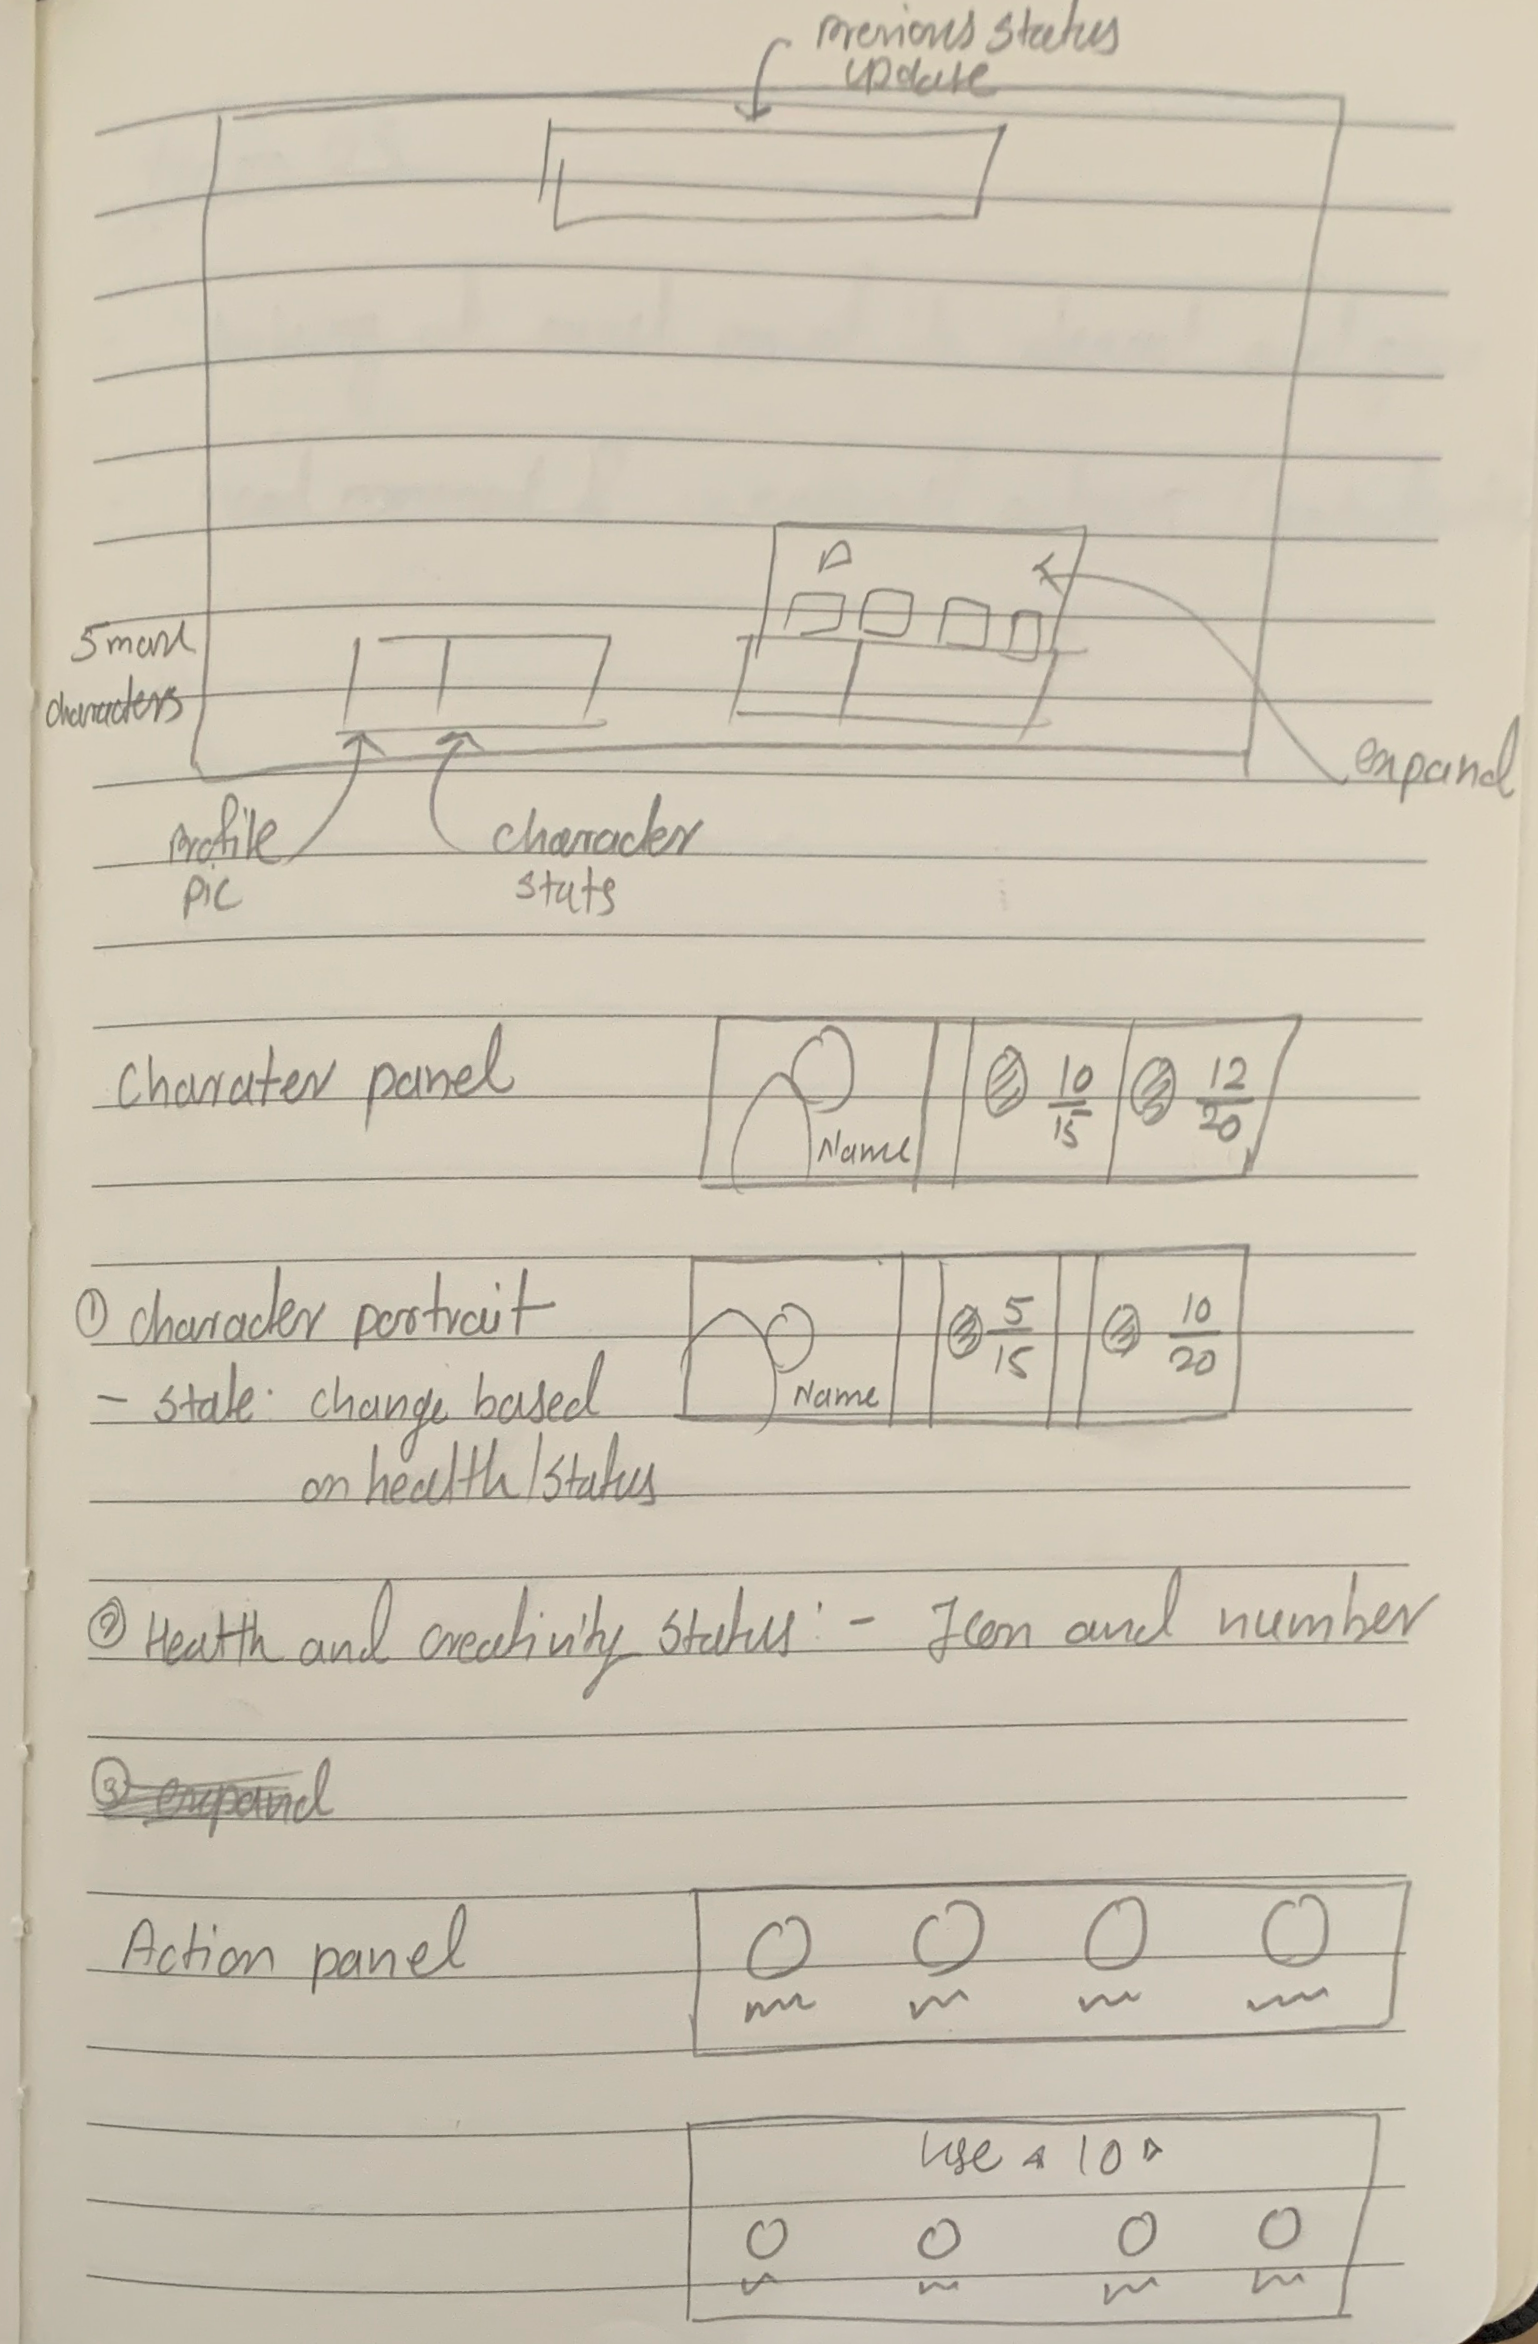 previous status
update
Small
characters
expand
profile
pic
character
stats
Charater panel
Name
10
15
12
20
① character portrait
- State: change based
on health/status
Name
5
15
10
20
② Health and creativity status: - Icon and number
③ expand
Action panel
Use ◁ 10 ▷